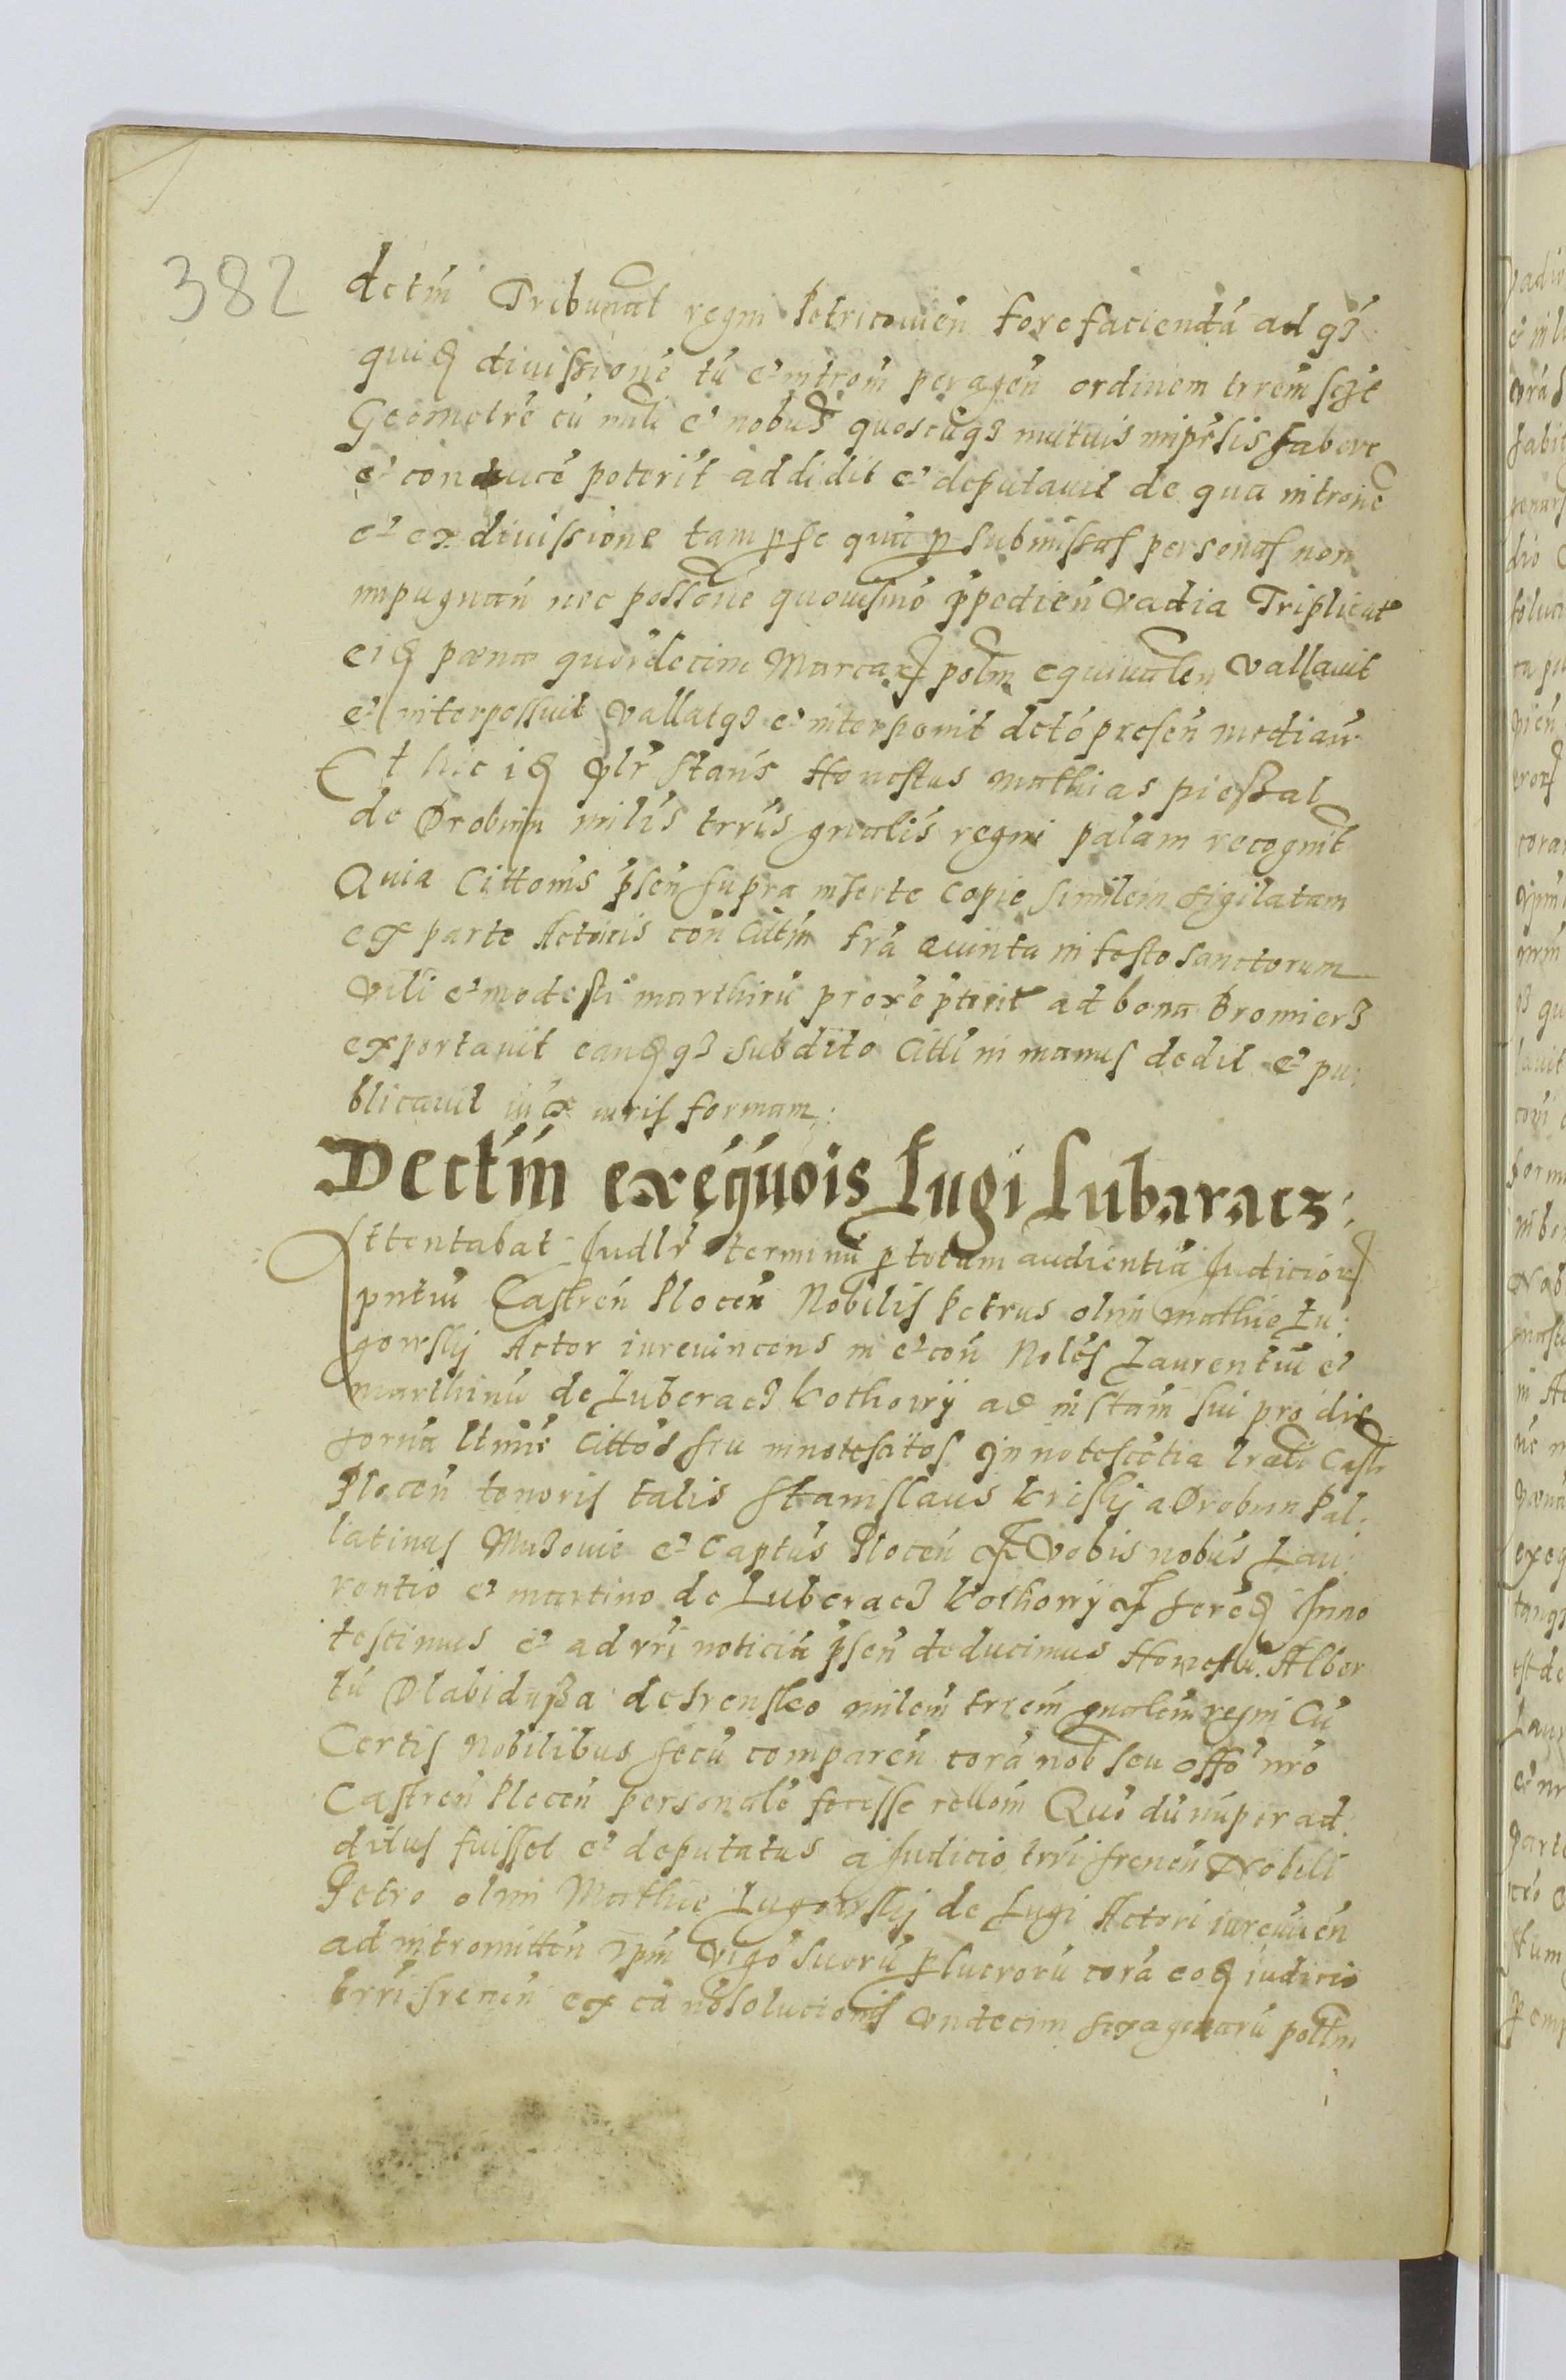 382
dctm̃ Tribunal regni Petricouien̄ fore faciendā ad qz
quiđ diuissionē tū et intrōm peragen̄ ordinem trrēm scżt
Geometrē cū mli et nobus quoscūqz mutuis habere
et conducē poterit addidit et deputauit de qua intrōne
et ex diuissione tam p se quā p submissas personas non
impugnan̄ nec possōne quouismō p̄pedien̄ vadia Triplicat
eiđ pœna quordecim Marcarꝝ polm equiualen̄ vallauit
et interpossuit vallatqz et interponit dctō presen̄ median̄
Et hic iđ plr̄ stan̄s Honestus Mathias pieszal
de Drobnin mil̄is trrīs gn̄alis regni palam recognit
Quia Cittonis p̄sen̄ supra inserte Copie similem sigilatam
ex parte Actoris con̄ Citm̄ fr̄a quinta in festo Sanctorum
viti et modesti marthirū proxe p̄terit ad bona Bromierz
exportauit eanđqz subdito Citti in manus dedit et pu:
blicauit iux iuris formam:
Dectm̄ exeqúois Lugi Lubaracz:
Attentabat Judlr̄ terminū p totam audientiā Judiciorꝝ
pn̄tiu Castren̄ Plocen̄ Nobilis Petrus olim Mathie Lu:
gowskij Actor iureuincens in et con̄ Noles Laurentiū et
Marthinū de Luberacz Kothowij ad instam̄ sui pro die
hornā ltimē Cittōs seu innotescitos Innotescētia lrali Castr
Plocen̄ tenoris talis Stanislaus Kriskij a Drobnin Pal:
latinus Mazouie et Captus Plocen̄ vobis nobus Lau:
rentio et martino de Luberacz Kothowij heređ Inno
tescimus et ad vrī noticiā p̄sen̄ deducimus Honestū Alber
tū Dlabiduszα de srensko milem trrēm gnalem regni Cū
Certis nobilibus secū comparen̄ corā nob seu offo nrō
Castren̄ Plocen̄ personalē fecisse rellōm Quō dū nuper ad:
ditus fuisset et deputatus a Judicio trrī srenen̄ Nobili
Petro olim Mathie Lugowskij de Lugi Actori iureuīen̄
ad intromitten̄ ipm̄ vigō suorū p lucrorū corā eođ iudicio
trrī srenen̄ ex cā nōsolucionis vndecim sexagenarū poltm